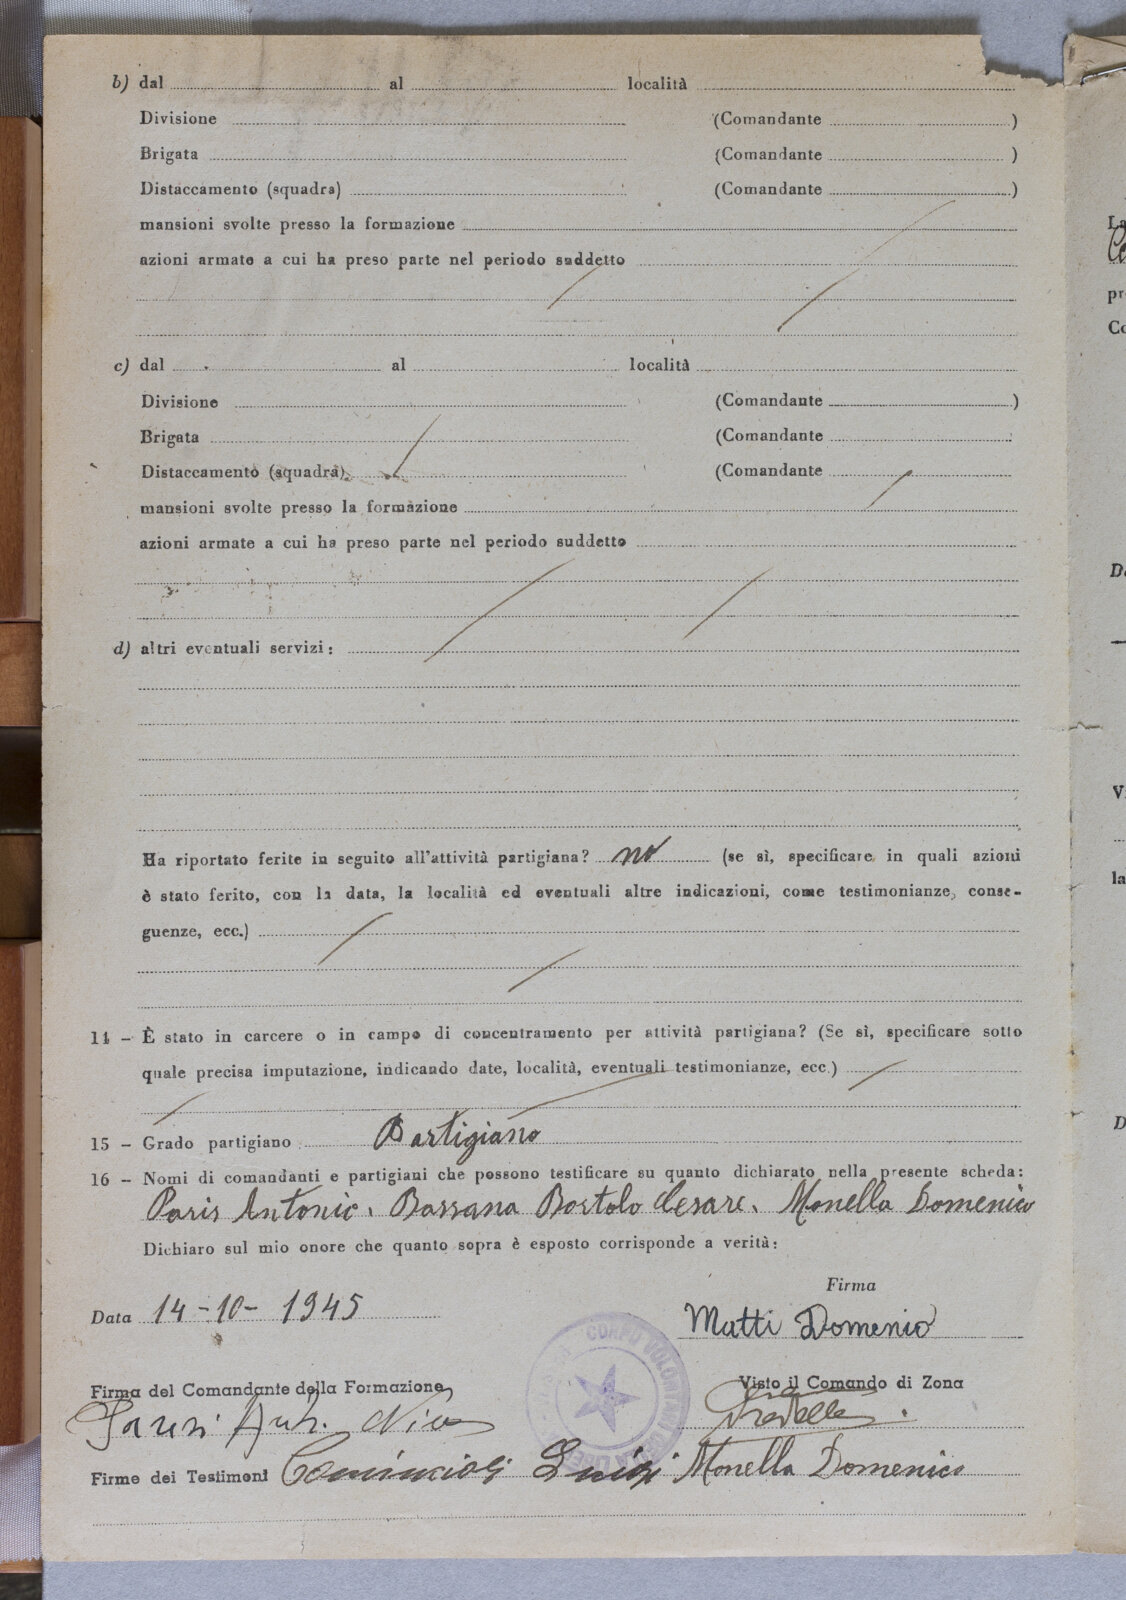 b) dal al località
Divisione (Comandante )
Brigata (Comandante )
Distaccamento (squadra) (Comandante )
mansioni svolte presso la formazione
azioni armate a cui ha preso parte nel periodo suddetto
c) dal al località
Divisione (Comandante )
Brigata (Comandante
Distaccamento (squadra) (Comandante
mansioni svolte presso la formazione
azioni armate a cui ha preso parte nel periodo suddetto
d) altri eventuali servizi:
Ha riportato ferite in seguito all'attività partigiana? no (se sì, specificare in quali azioni
è stato ferito, con la data, la località ed eventuali altre indicazioni, come testimonianze, conse-
guenze, ecc.)
14 - È stato in carcere o in campo di concentramento per attività partigiana? (Se sì, specificare sotto
quale precisa imputazione, indicando date, località, eventuali testimonianze, ecc.)
15 - Grado partigiano Partigiano
16 - Nomi di comandanti e partigiani che possono testificare su quanto dichiarato nella presente scheda:
Paris Antonio. Bassana Bortolo Cesare. Monella Domenico
Dichiaro sul mio onore che quanto sopra è esposto corrisponde a verità:
Firma
Data 14-10-1945 Matti Domenio
CORPO VOLONTARI DELLA
Firma del Comandante della Formazione Visto il Comando di Zona
Firme dei Testimoni Comincioli Luigi Monella Domenico